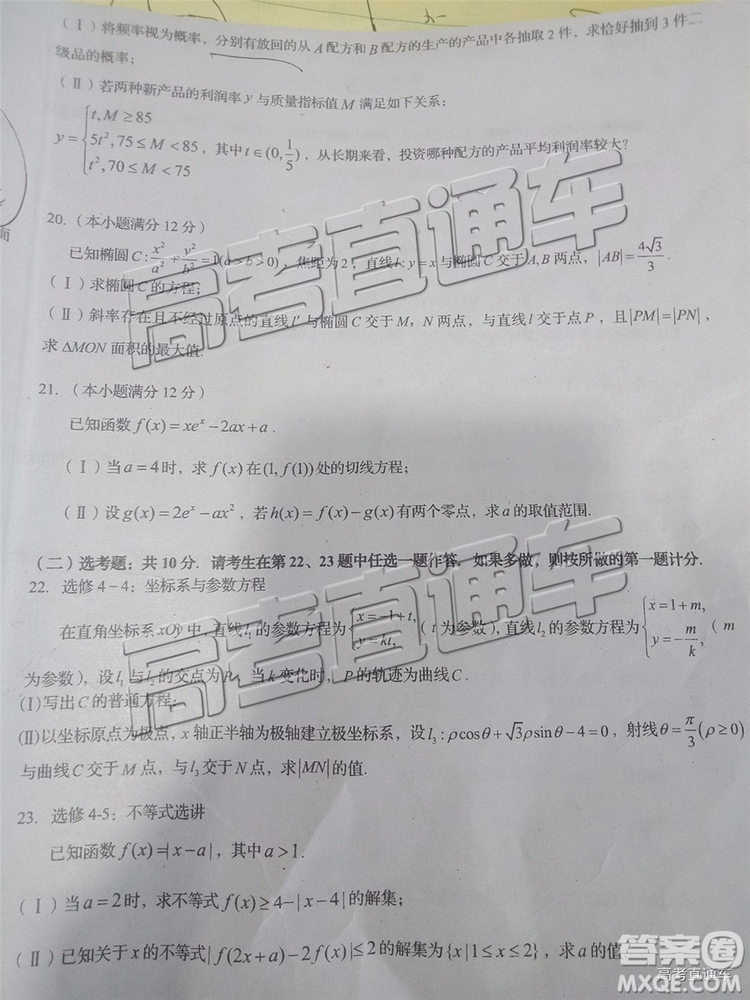 （Ⅰ）将频率视为概率，分别有放回的从 A 配方和 B 配方的生产的产品中各抽取 2 件，求恰好抽到 3 件二
级品的概率；
（Ⅱ）若两种新产品的利润率 y 与质量指标值 M 满足如下关系：
y={t, M≥85
5t², 75≤M<85，其中 t∈(0, 1/5)，从长期来看，投资哪种配方的产品平均利润率较大？
t², 70≤M<75
20.（本小题满分 12 分）
已知椭圆 C: x²/a² + y²/b² =1(a>b>0)，焦距为 2，直线 l: y=x 与椭圆 C 交于 A,B 两点，|AB|=4√3/3.
（Ⅰ）求椭圆 C 的方程；
（Ⅱ）斜率存在且不经过原点的直线 l′ 与椭圆 C 交于 M，N 两点，与直线 l 交于点 P，且 |PM|=|PN|，
求 ΔMON 面积的最大值.
21.（本小题满分 12 分）
已知函数 f(x)=xeˣ−2ax+a.
（Ⅰ）当 a=4 时，求 f(x) 在 (1, f(1)) 处的切线方程；
（Ⅱ）设 g(x)=2eˣ−ax²，若 h(x)=f(x)−g(x) 有两个零点，求 a 的取值范围.
（二）选考题：共 10 分．请考生在第 22、23 题中任选一题作答．如果多做，则按所做的第一题计分．
22. 选修 4－4：坐标系与参数方程
在直角坐标系 xOy 中，直线 l₁ 的参数方程为 {x=−1+t, y=kt,（t 为参数），直线 l₂ 的参数方程为 {x=1+m, y=−m/k,（m
为参数），设 l₁ 与 l₂ 的交点为 P，当 k 变化时，P 的轨迹为曲线 C.
(Ⅰ)写出 C 的普通方程；
(Ⅱ)以坐标原点为极点，x 轴正半轴为极轴建立极坐标系，设 l₃: ρcosθ+√3ρsinθ−4=0，射线 θ=π/3 (ρ≥0)
与曲线 C 交于 M 点，与 l₃ 交于 N 点，求 |MN| 的值.
23. 选修 4-5：不等式选讲
已知函数 f(x)=|x−a|，其中 a>1.
（Ⅰ）当 a=2 时，求不等式 f(x)≥4−|x−4| 的解集；
（Ⅱ）已知关于 x 的不等式 |f(2x+a)−2f(x)|≤2 的解集为 {x|1≤x≤2}，求 a 的值
高考直通车
高考直通车
答案圈
MXQE.COM
高考直通车